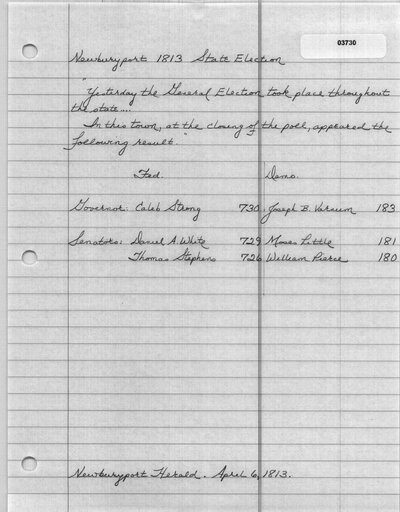 03730
Newburyport 1813 State Election
"Yesterday the General Election took place throughout
the state....
In this town, at the closing of the poll, appeared the
following result."
Fed. Demo.
Governor: Caleb Strong 730 Joseph B. Varnum 183
Senators: Daniel A. White 729 Moses Little 181
Thomas Stephens 726 William Pierce 180
Newburyport Herald. April 6, 1813.